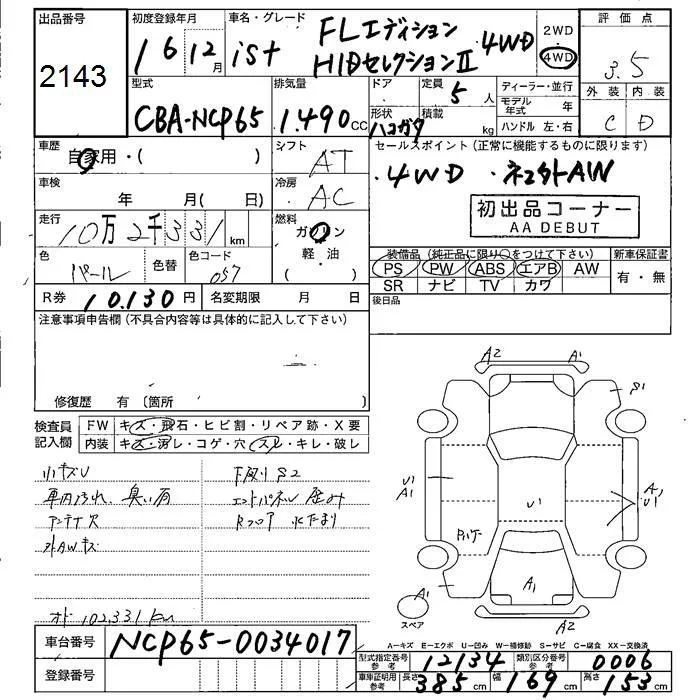 出品番号 2143
初度登録年月 16年12月
車名・グレード ist FLエディション HIDセレクションII 4WD
2WD・4WD
評価点 3.5
外装 内装
C D
型式 CBA-NCP65
排気量 1.490cc
ドア・形状 ハコガタ
定員 5人
積載 kg
ディーラー・並行
モデル年式 年
ハンドル 左・右
車歴 自家用・( )
シフト AT
車検 年 月( 日)
冷房 AC
走行 10万2千331km
燃料 ガソリン 軽・油 ( )
色 パール 色替 色コード 057
R券 10.130円 名変期限 月 日
セールスポイント(正常に機能するものに限ります)
・4WD ・ネコ外AW
初出品コーナー
AA DEBUT
装備品(純正品に限り○をつけて下さい) 新車保証書
PS PW ABS エアB AW 有・無
SR ナビ TV カワ
後日品
注意事項申告欄(不具合内容等は具体的に記入して下さい)
修復歴 有 〔箇所
検査員記入欄
FW キズ・飛石・ヒビ割・リペア跡・X要
内装 キズ・汚レ・コゲ・穴・スレ・キレ・破レ
小キズU 下廻りS2
車内汚れ、臭い有 エンドパネル歪み
アンテナ欠 Rフロア 水たまり
外AWキズ
オド 102,331km
車台番号 NCP65-0034017
登録番号
A2 A1
S1
U1
A1
U1
A1
U1
A1
A1
スペア
A2
A=キズ E=エクボ U=凹み W=補修跡 S=サビ C=腐食 XX=交換済
型式指定番号 参考 12134 類別区分番号 参考 0006
車庫証明用 参考 長さ 385cm 幅 169cm 高さ 153cm